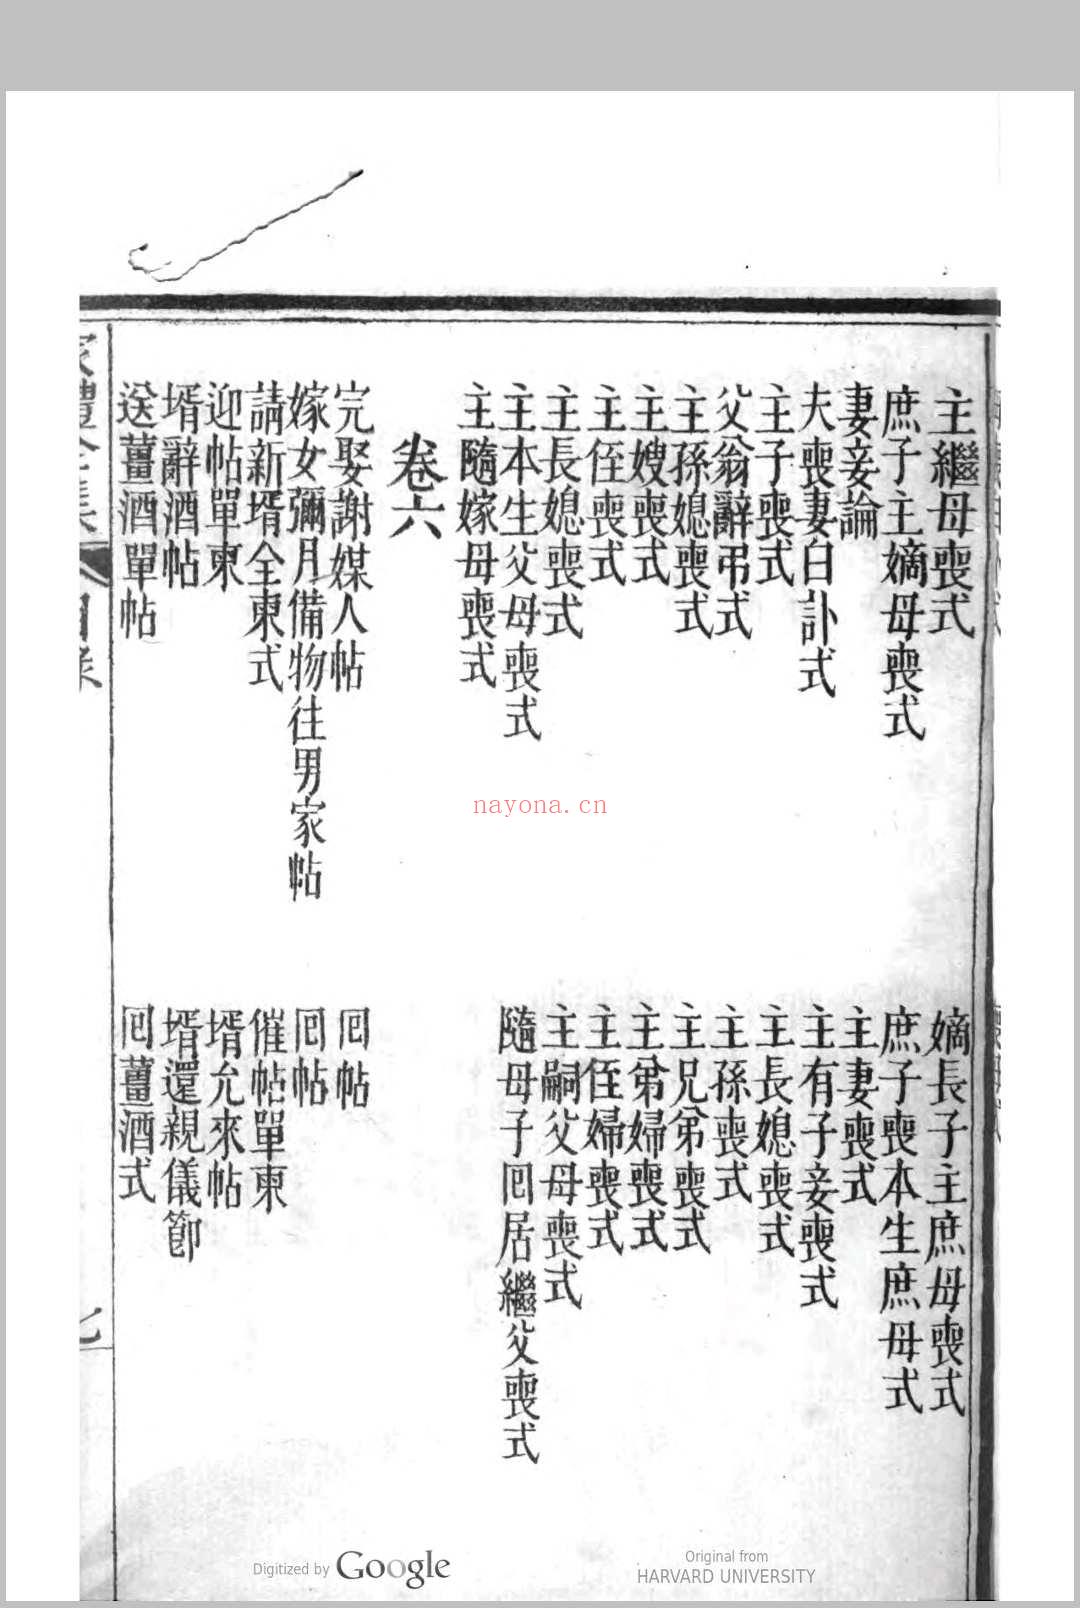 主繼母喪式
嫡長子主庶母喪式
庶子主嫡母喪式
庶子喪本生庶母式
妻妾論
主妻喪式
夫喪妻白訃式
主有子妾喪式
主子喪式
主長媳喪式
父翁辭弔式
主孫喪式
主孫媳喪式
主兄弟喪式
主嫂喪式
主弟婦喪式
主侄喪式
主侄婦喪式
主長媳喪式
主嗣父母喪式
主本生父母喪式
隨母子囘居繼父喪式
主隨嫁母喪式
卷六
完娶謝媒人帖
囘帖
嫁女彌月備物往男家帖
囘帖
請新壻全柬式
催帖單柬
迎帖單柬
壻允來帖
壻辭酒帖
壻還親儀節
送薑酒單帖
囘薑酒式
nayona.cn
Digitized by Google
Original from
HARVARD UNIVERSITY